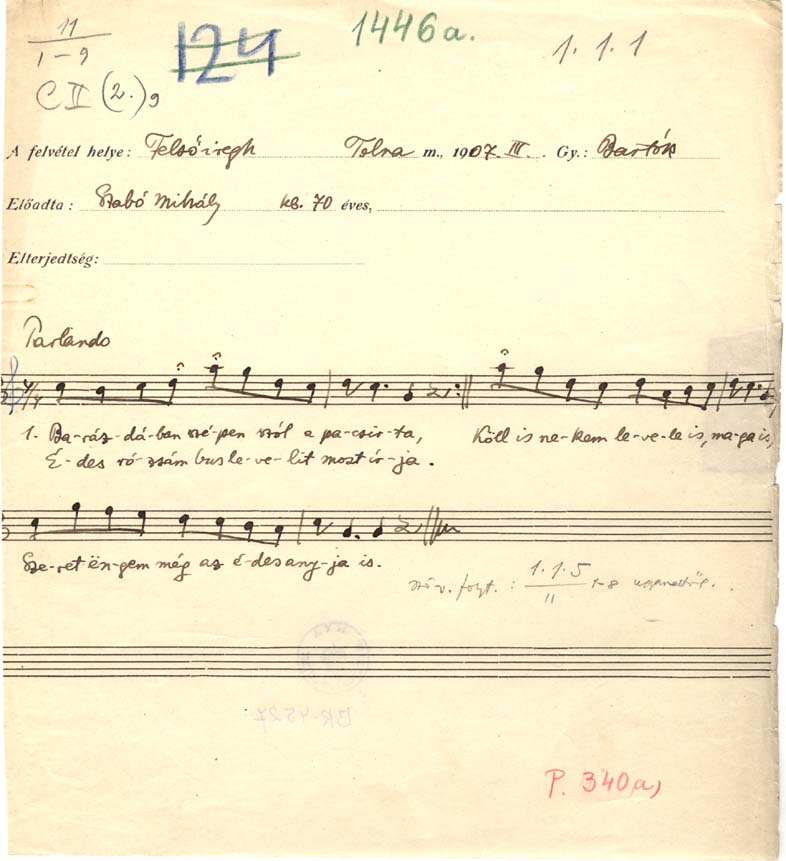 11
1-9
124
1446a.
1.1.1
C II (2.)9
A felvétel helye: Felsőiregh Tolna m., 1907. III. Gy.: Bartók
Előadta: Szabó Mihály kb. 70 éves,
Elterjedtség:
Parlando
4/4
1. Ba-ráz-dá-ban szé-pen szól a pa-csir-ta, Köll is ne-kem le-ve-le is, ma-ga is,
É-des ró-zsám bus le-ve-lit most ír-ja.
Sze-ret ën-gem még az é-des any-ja is.
szöv. folyt.: 1.1.5
11 1-8 ugyanettől.
BR-4527
P. 340a,